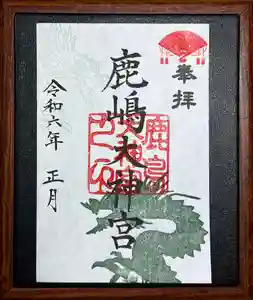 奉拝
鹿嶋大神宮
令和六年 正月